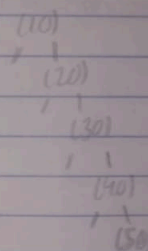 (10)
(20)
(30)
(40)
(50